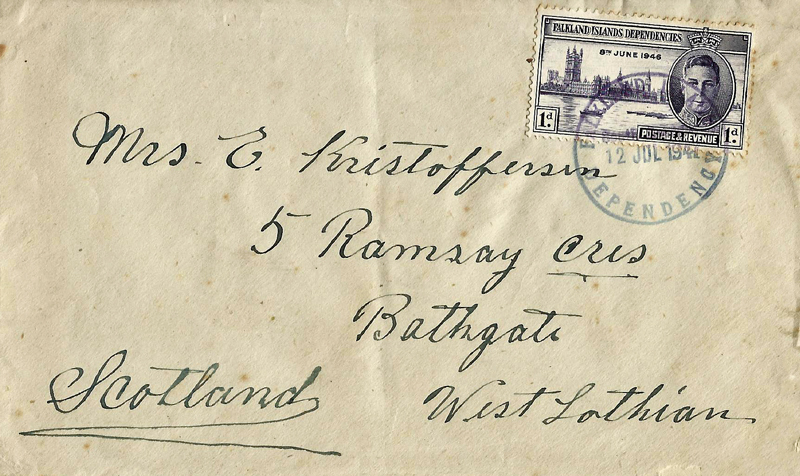 FALKLAND ISLANDS DEPENDENCIES
8TH JUNE 1946
1d. POSTAGE & REVENUE 1d.
12 JUL 194
DEPENDENCY
Mrs. E. Kristoffersen
5 Ramsay Cres
Bathgate
West Lothian
Scotland